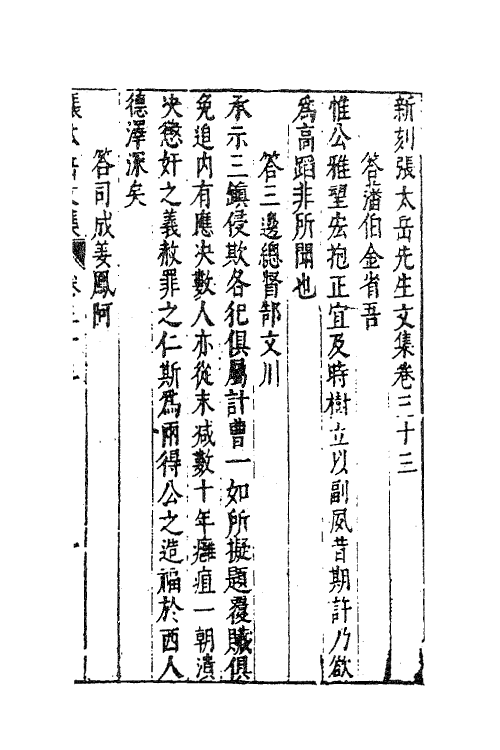 新刻張太岳先生文集卷三十三
答藩伯金省吾
惟公雅望宏抱正宜及時樹立以副夙昔期許乃欲
為高蹈非所聞也
答三邊總督郜文川
承示三鎮侵欺各犯俱屬計曹一如所擬題覆贓俱
免追內有應决數人亦從末减數十年癰疽一朝潰
决懲奸之義赦罪之仁斯為兩得公之造福於西人
德澤深矣
答司成姜鳳阿
張太岳文集 卷三十三 一